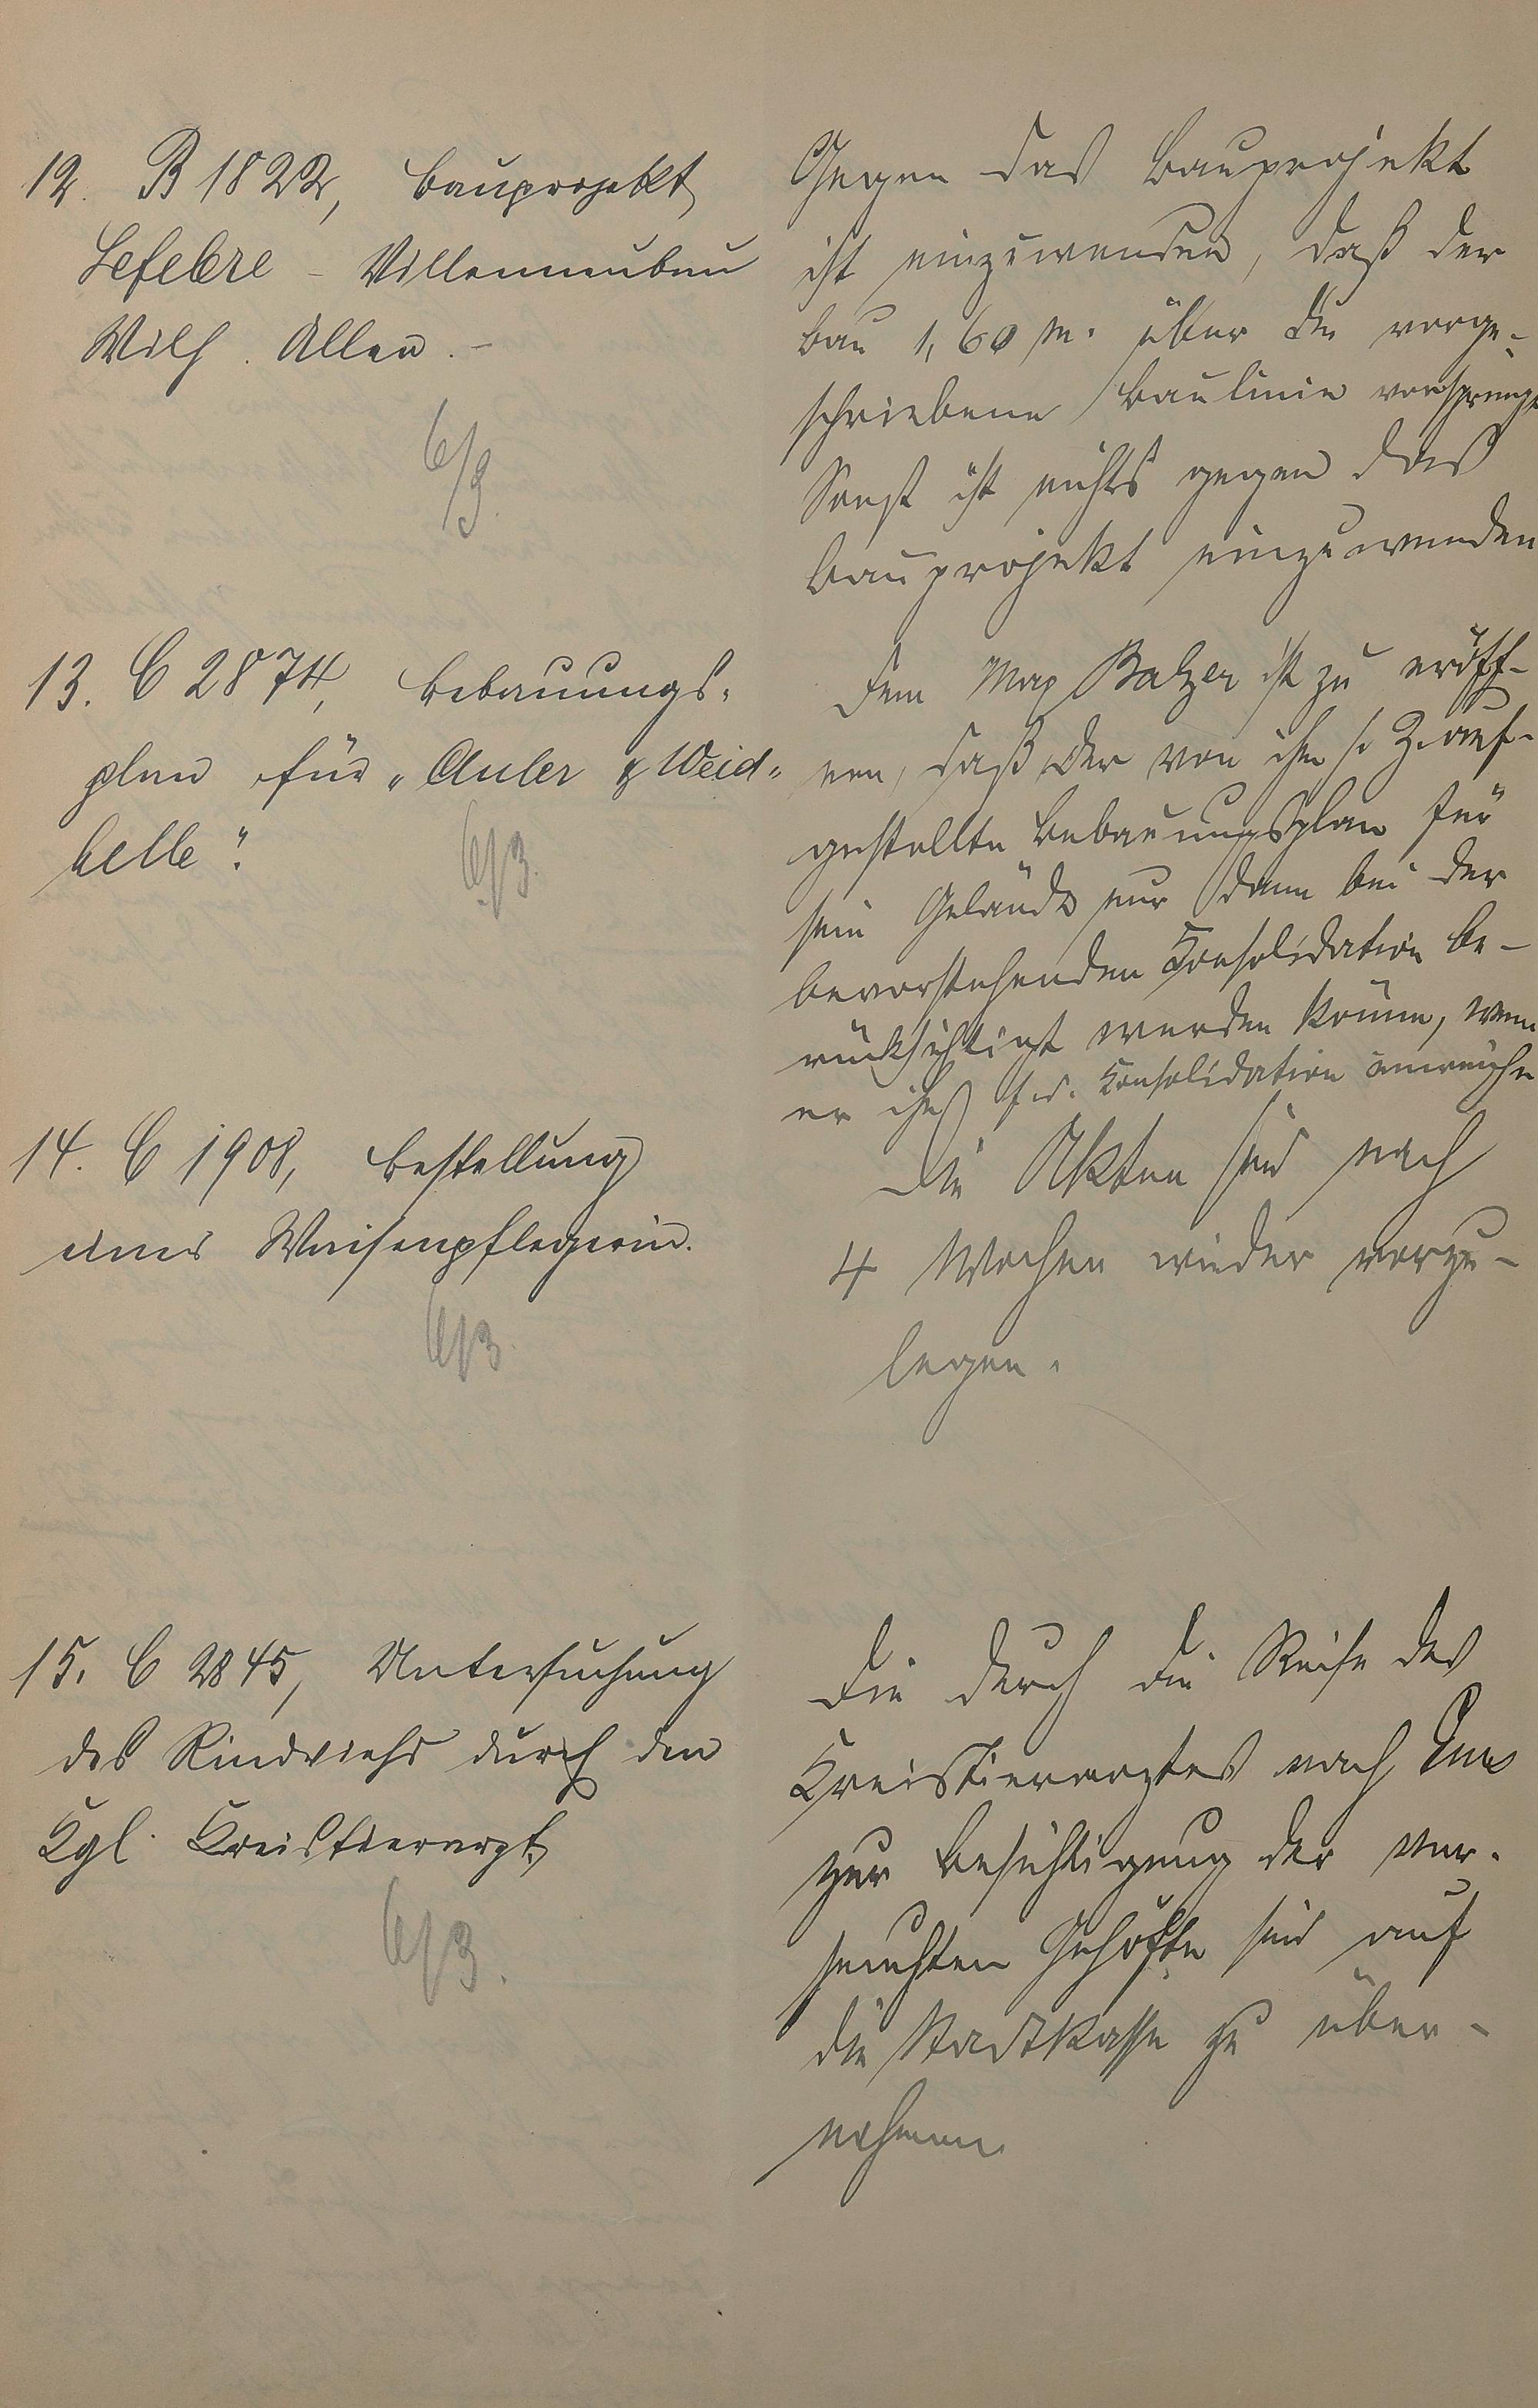 12. B 1822, Bauprojekt
Lefebre - Villenneubau
Wilh. Allee. -
6/3.
Gegen das Bauprojekt
ist einzuwenden, daß der
Bau 1,60 m. über die vorge-
schriebene Baulinie vorspringt
Sonst ist nichts gegen das
Bauprojekt einzuwenden
13. C 2874, Bebauungs-
plan für "Auler & Weid-
helle".
6/3.
Dem Max Balzer ist zu eröff-
nen, daß der von ihm s. Z. auf-
gestellte Bebauungsplan für
sein Gelände nur dann bei der
bevorstehenden Konsolidation be-
rücksichtigt werden könne, wenn
er f. d. Konsolidation
14. C 1908, Bestellung
einer Waisenpflegerin.
6/3.
Die Akten sind nach
4 Wochen wieder vorzu-
legen.
15. C 2845, Untersuchung
des Rindviehs durch den
Kgl. Kreistierarzt.
6/3.
Die durch die Reise des
Kreistierarztes nach Ems
zur Besichtigung der ver-
seuchten Gehöfte sind auf
die Stadtkasse zu über-
nehmen.